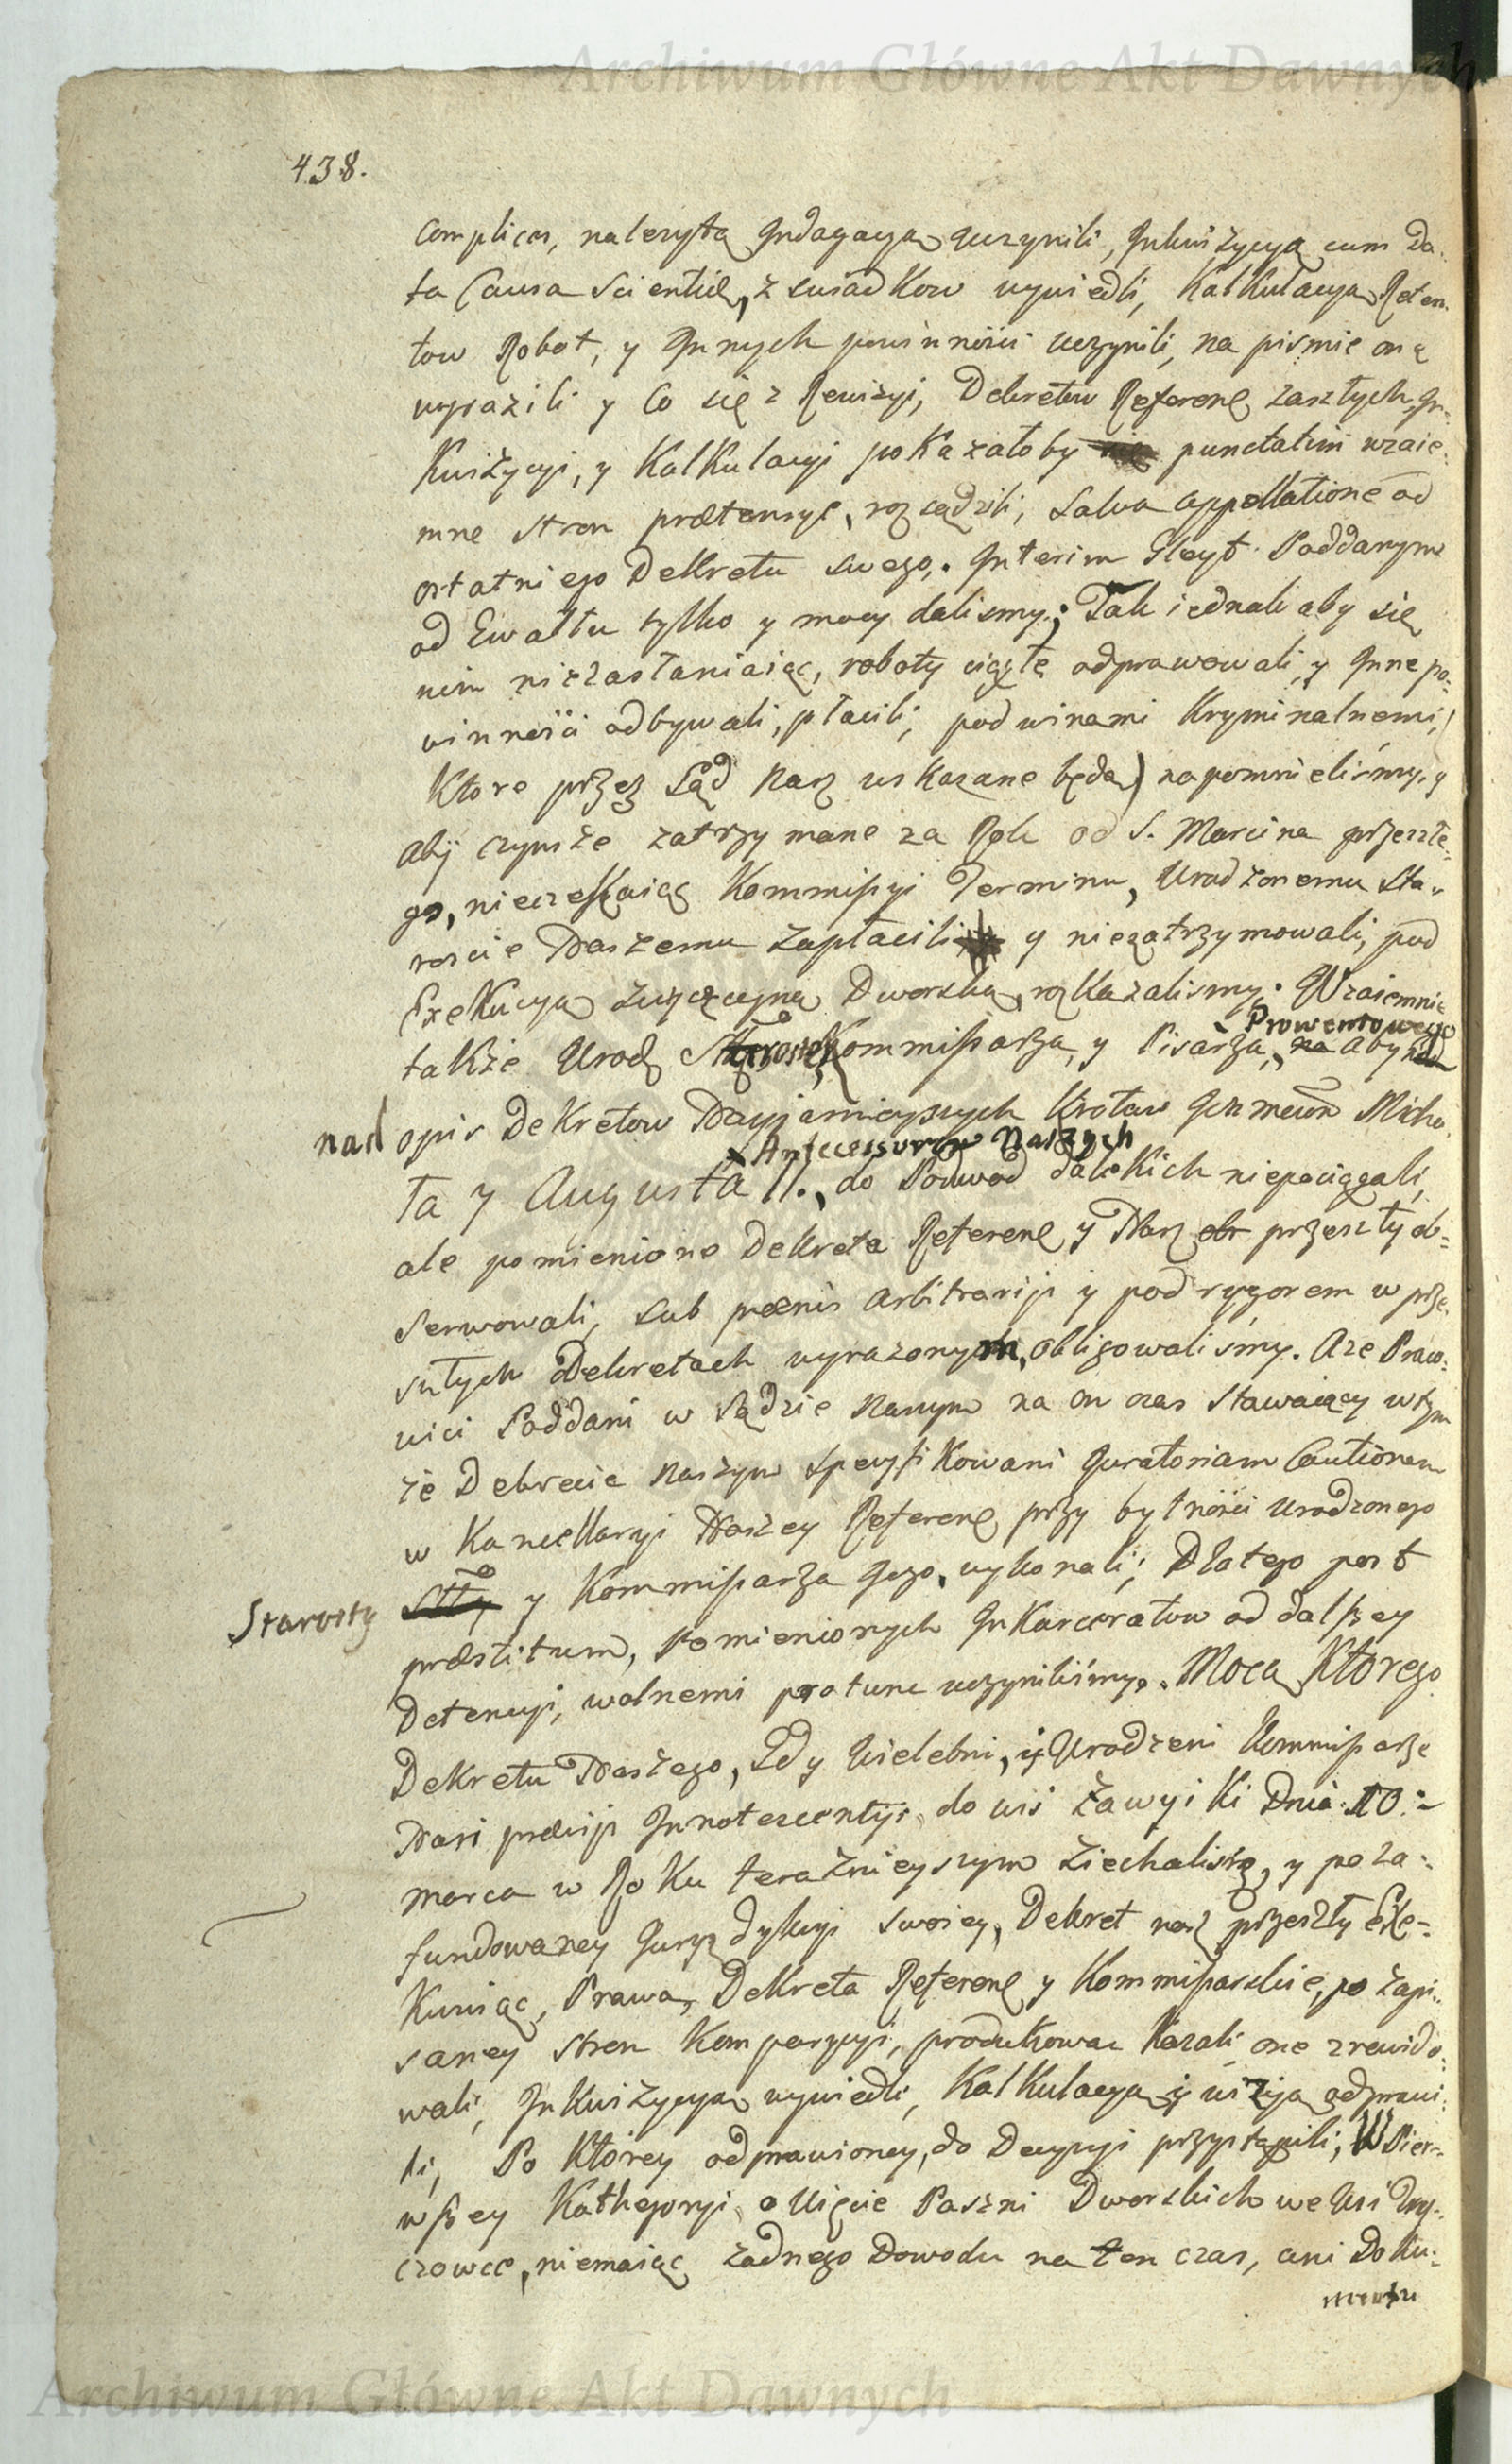 Archiwum Główne Akt Dawnych
438.
complices, należytą Jndagacyą uczynili, Jnkwizycyą cum da-
ta Causa Scientiæ, z swiadkow wywiedli, Kalkulacyą Reten-
tow Robot, y Jnnych powinności uczynili, na pismie onę
wyrazili y Co się z Rewizyi, Dekretow Referen zaszłych, Jn-
kwizycyi, y Kalkulacyi pokazałoby punctatim wzaie-
mne stron prætensye, rozsądzili, salva appellatione od
ostatniego Dekretu swego. Interim Gleyt Poddanym
od Gwałtu tylko y mocy dalismy; Tak iednak aby się
nim niezasłaniaiąc, roboty ciągłe odprawowali, y Jnne po-
winności odbywali, płacili, pod winami Kryminalnemi,
Ktore przez Sąd Nasz wskazane będą) napomnieliśmy, y
aby czynsze zatrzymane za Rok od S. Marcina przeszłe-
go, nieczekaiąc Kommissyi Terminu, Urodzonemu Sta-
roscie Naszemu zapłacili y niezatrzymowali, pod
Exekucyą zwyczayną Dworską, rozkazalismy. Wzaiemnie
Prowentowego
także Urodz Kommissarza, y Pisarza, aby
nad opis Dekretow Nayjasnieyszych Krolow Jchmciow Micha-
Antecessorow Naszych
ła y Augusta II., do Podwod dalekich niepociągali,
ale pomienione Dekreta Referen y Nasz przeszły ob-
serwowali, sub pœnis arbitrarijs y pod rygorem w prze-
szłych Dekretach wyrazonym, obligowaliśmy. Aze Praco-
wici Poddani w Sądzie Naszym na on czas stawaiący w tym
że Dekrecie Naszym specyfikowani Juratoriam Cautionem
w Kancellaryi Naszey Referen przy bytności Urodzonego
Starosty y Kommissarza Jego, wykonali; Dlatego post
præstitum, Pomienionych Jnkarceratow od dalszey
Detencyi, wolnemi pro tunc uczyniliśmy. Mocą Ktorego
Dekretu Naszego, Gdy Wielebni, y Urodzeni Kommissarze
Nasi prævijs Jnnotescentijs do wsi Zawyiki Dnia 10:
Marca w Roku teraźnieyszym ziechali się, y po za-
fundowaney Juryzdykcyi swoiey, Dekret nasz przeszły Exe-
kwuiąc, Prawa, Dekreta Referen y Kommissarskie, po zapi-
saney stron Komparycyi, produkowac kazali, one zrewido-
wali, Jnkwizycyą wywiedli, Kalkulacyą y wizyą odprawi-
li, Po Ktorey odprawioney, do Decyzyi przystąpili, W Pier-
wszey Kathegoryi o Uięcie Paszni Dworskich we Wsi
czowce, niemaiąc żadnego Dowodu na ten czas, ani Doku-
mentu
Archiwum Główne Akt Dawnych